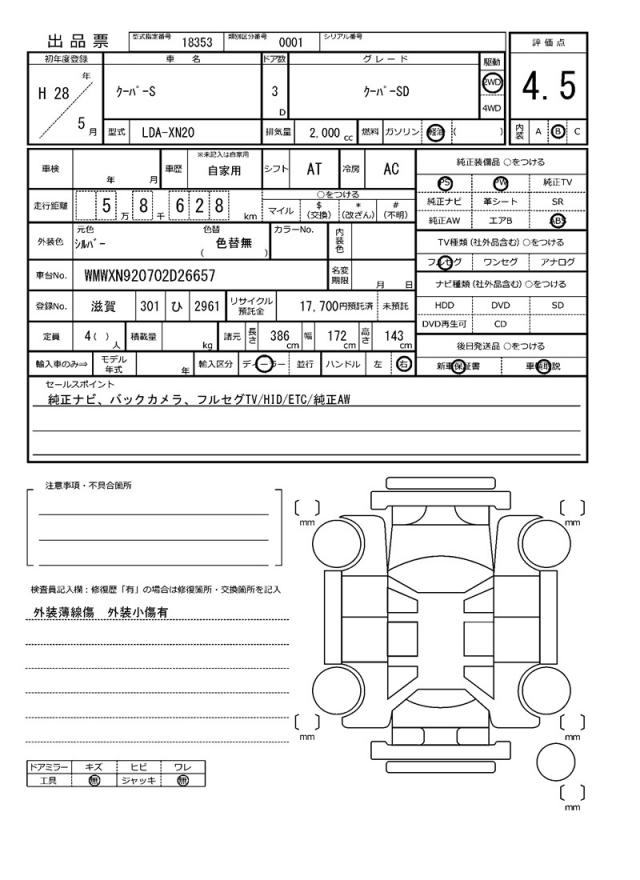 出品票 型式指定番号 18353 類別区分番号 0001 シリアル番号
評価点
4.5
初年度登録 車名 ドア数 グレード 駆動
H 28 年 5 月 クーパーS 3 D クーパーSD 2WD 4WD
型式 LDA-XN20 排気量 2,000 cc 燃料 ガソリン 軽油 ( ) 内装 A B C
車検 年 月 車歴 ※未記入は自家用 自家用 シフト AT 冷房 AC
走行距離 5 万 8 千 6 2 8 km ○をつける
マイル $(交換) *(改ざん) #(不明)
外装色 元色 シルバー 色替 ( 色替無 ) カラーNo. 内装色
車台No. WMWXN920702D26657 名変期限 月 日
登録No. 滋賀 301 ひ 2961 リサイクル預託金 17,700円預託済 未預託
定員 4( ) 人 積載量 kg 諸元 長さ 386 cm 幅 172 cm 高さ 143 cm
輸入車のみ⇒ モデル年式 年 輸入区分 ディーラー 並行 ハンドル 左 右
純正装備品 ○をつける
PS PW 純正TV
純正ナビ 革シート SR
純正AW エアB ABS
TV種類(社外品含む)○をつける
フルセグ ワンセグ アナログ
ナビ種類(社外品含む)○をつける
HDD DVD SD
DVD再生可 CD
後日発送品 ○をつける
新車保証書 車輌取説
セールスポイント
純正ナビ、バックカメラ、フルセグTV/HID/ETC/純正AW
注意事項・不具合箇所
検査員記入欄：修復歴「有」の場合は修復箇所・交換箇所を記入
外装薄線傷 外装小傷有
ドアミラー キズ ヒビ ワレ
工具 無 ジャッキ 無
mm
mm
mm
mm
mm